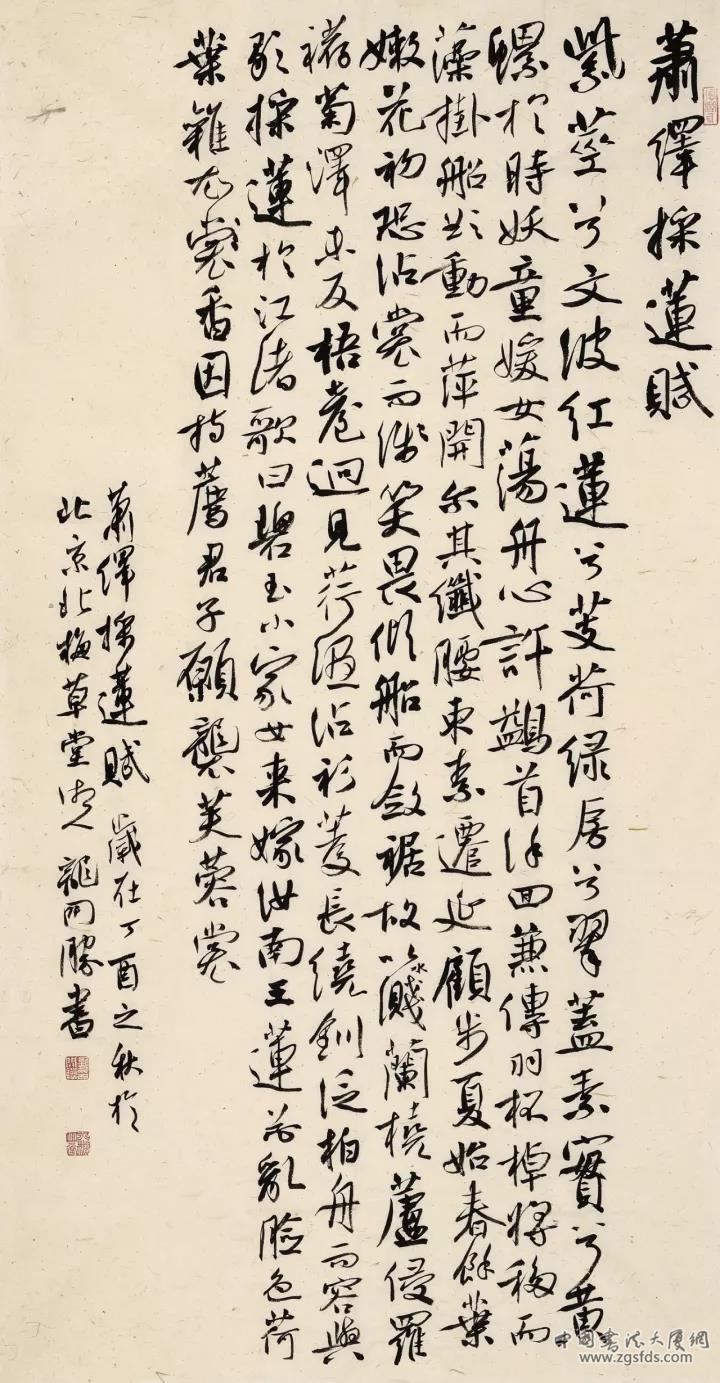 蕭繹採蓮賦
紫莖兮文波紅蓮兮芰荷綠房兮翠蓋素實兮黃
螺於時妖童媛女蕩舟心許鷁首徐回兼傳羽杯棹將移而
藻掛船欲動而萍開爾其纖腰束素遷延顧步夏始春餘葉
嫩花初恐沾裳而淺笑畏傾船而斂裾故以水濺蘭橈蘆侵羅
菊澤未反梧臺迥見荇濕沾衫菱長繞釧泛柏舟而容與
歌採蓮於江渚歌曰碧玉小家女來嫁汝南王蓮花亂臉色荷
葉雜衣裳香因持薦君子願襲芙蓉裳
蕭繹採蓮賦 歲在丁酉之秋於
北京北梅草堂 龍開勝書
中国书法大厦網
www.zgsfds.com